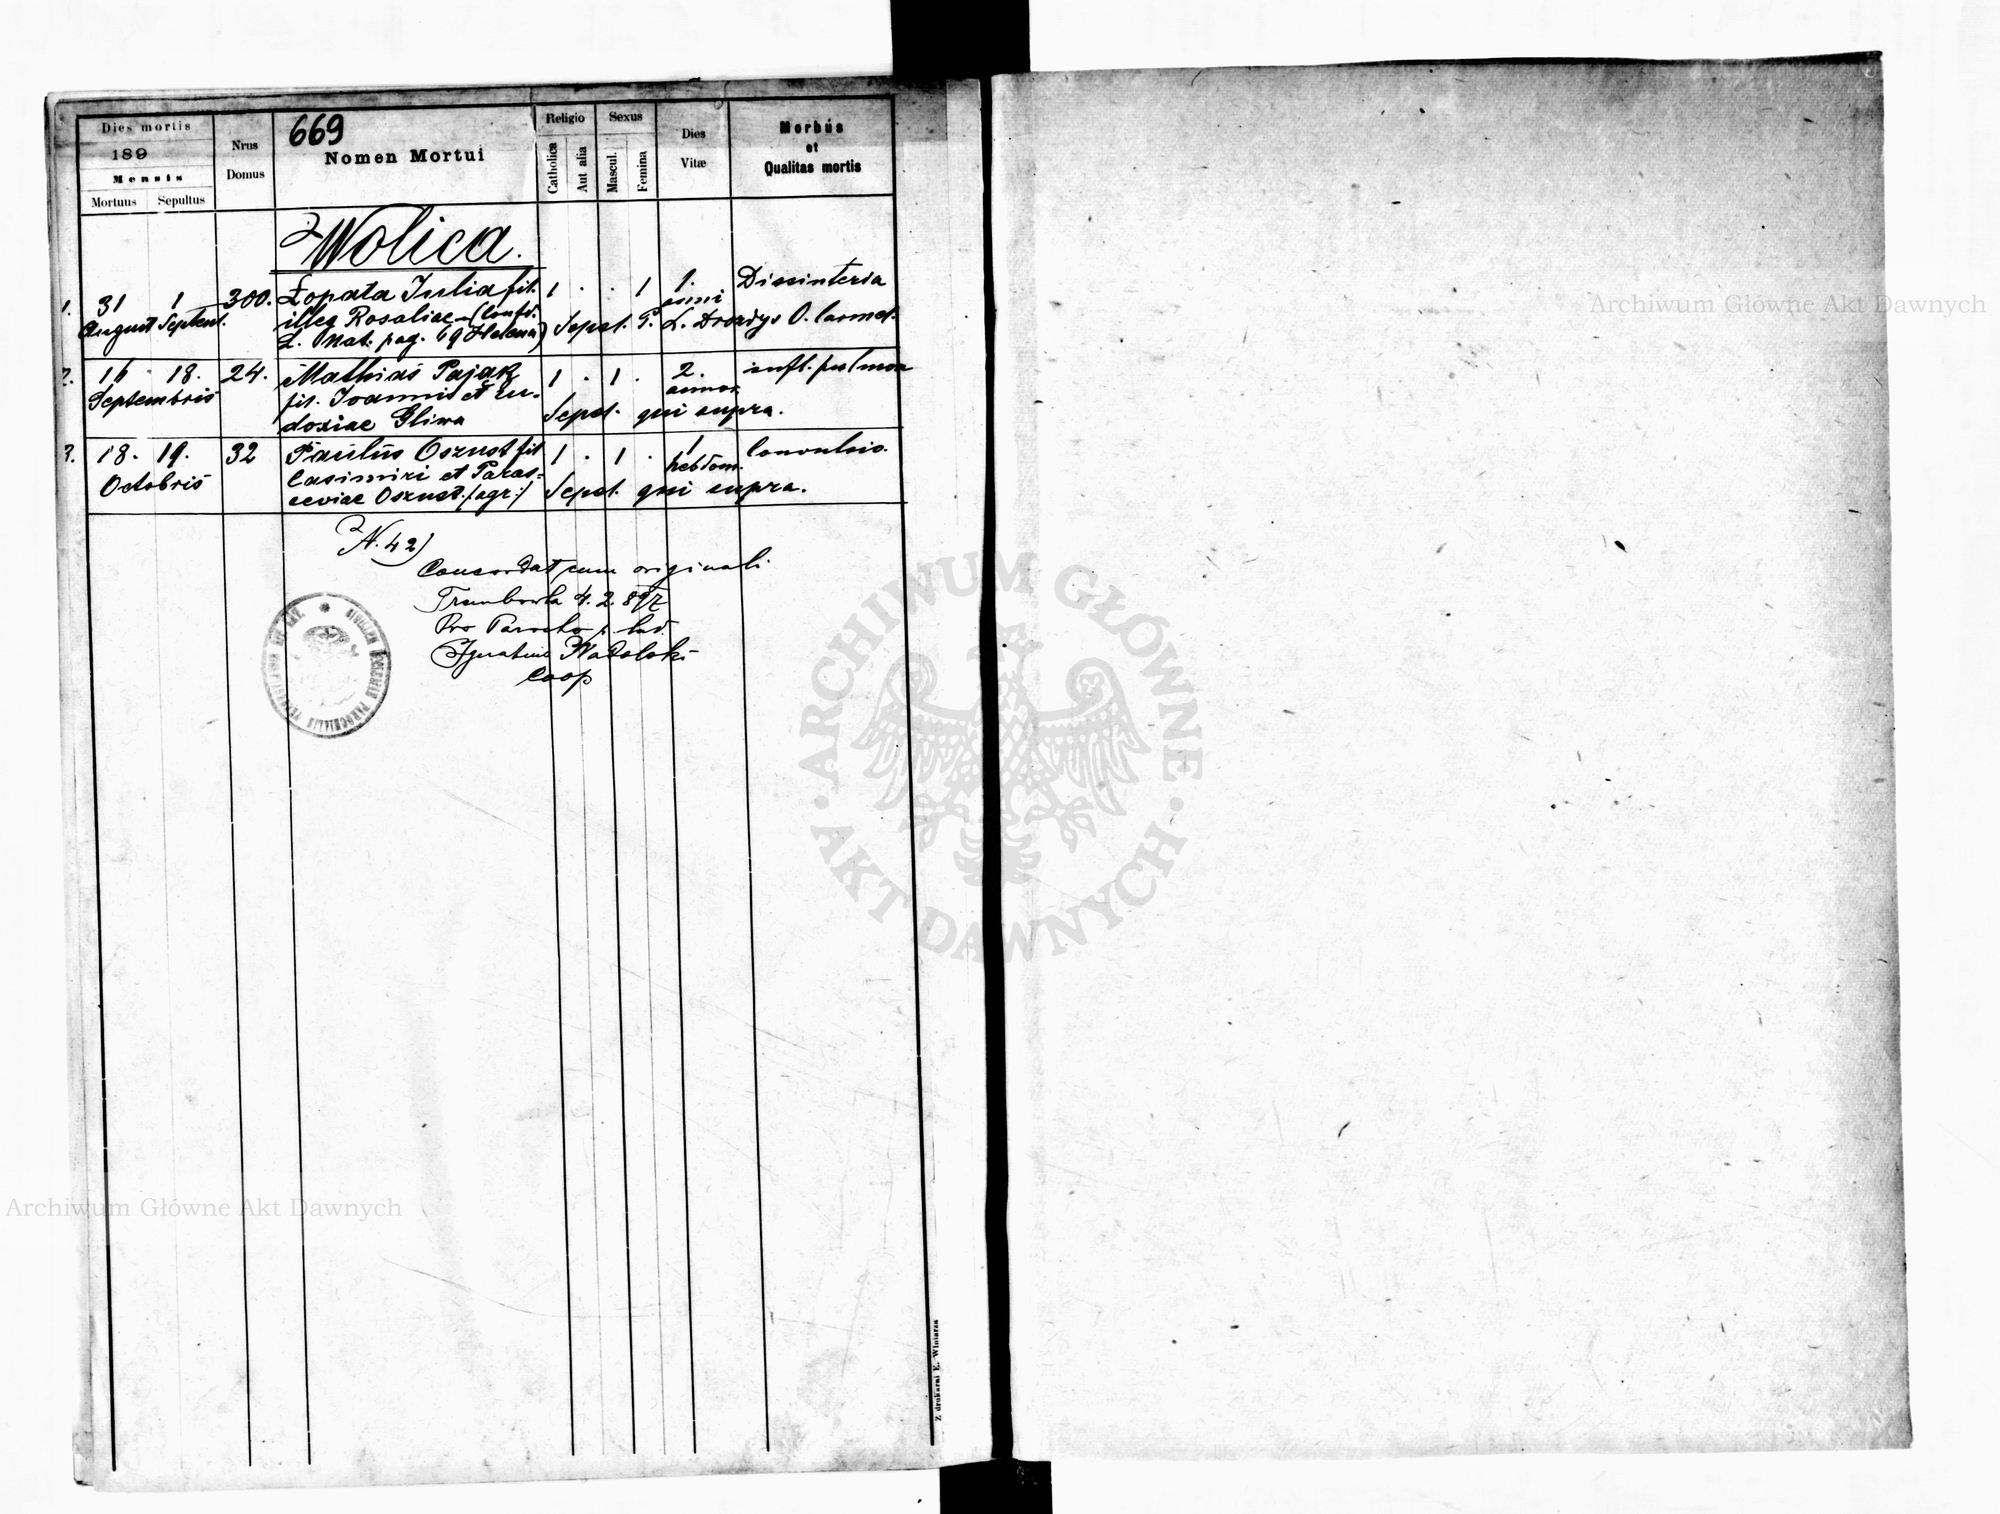 Dies mortis
189
Mensis
Mortuus Sepultus
Nrus
Domus
669
Nomen Mortui
Religio
Catholica
Aut alia
Sexus
Mascul.
Femina
Dies
Vitæ
Morbus
et
Qualitas mortis
Wolica.
1. 31 1 300. Łopata Julia fil. 1 . . 1 1. Dissinteria
August Septem. illeg Rosaliae (Confr. anni
L. Nat. pag. 69 Helena) Sepel. P. L. Drozdys O. Carmel.
2. 16 . 18. 24. Mathias Pająk 1 . 1 . 2. infl. pulmon
Septembris fil. Joannis et Eu- annor.
doxiae Gliwa Sepel. qui supra.
3. 18. 19. 32 Paulus Oszust fil 1 . 1 . 1 Convulsio.
Octobris Casimiri et Paras- hebdom.
ceviae Oszust. /agr:/ Sepel. qui supra.
N. 42)
Concordat cum originali
Trembowla 4. 2. 897
Pro Parocho
Ignatius Nadolski
Coop
Z drukarni E. Winiarza
Archiwum Główne Akt Dawnych
Archiwum Główne Akt Dawnych
ARCHIWUM GŁÓWNE
AKT DAWNYCH